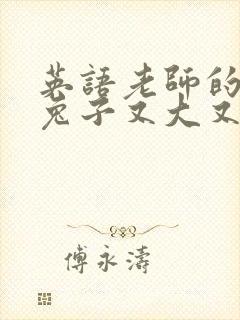 英語老師的
兔子又大又
傅永濤